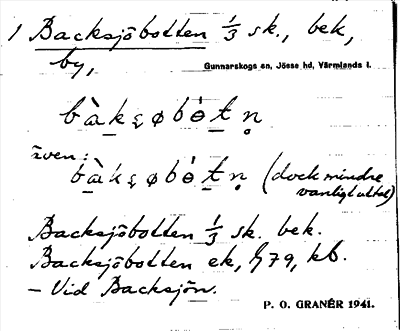 1 Backsjöbotten 1/3 sk., bek,
by,
Gunnarskogs sn, Jösse hd, Värmlands l.
bàkʂøbòtn̥
även:
bàkʂøbòtn̥ (dock mindre
vanligt uttal)
Backsjöbotten 1/3 sk. bek.
Backsjöbotten ek, G79, kb.
– Vid Backsjön.
P. O. GRANÉR 1941.